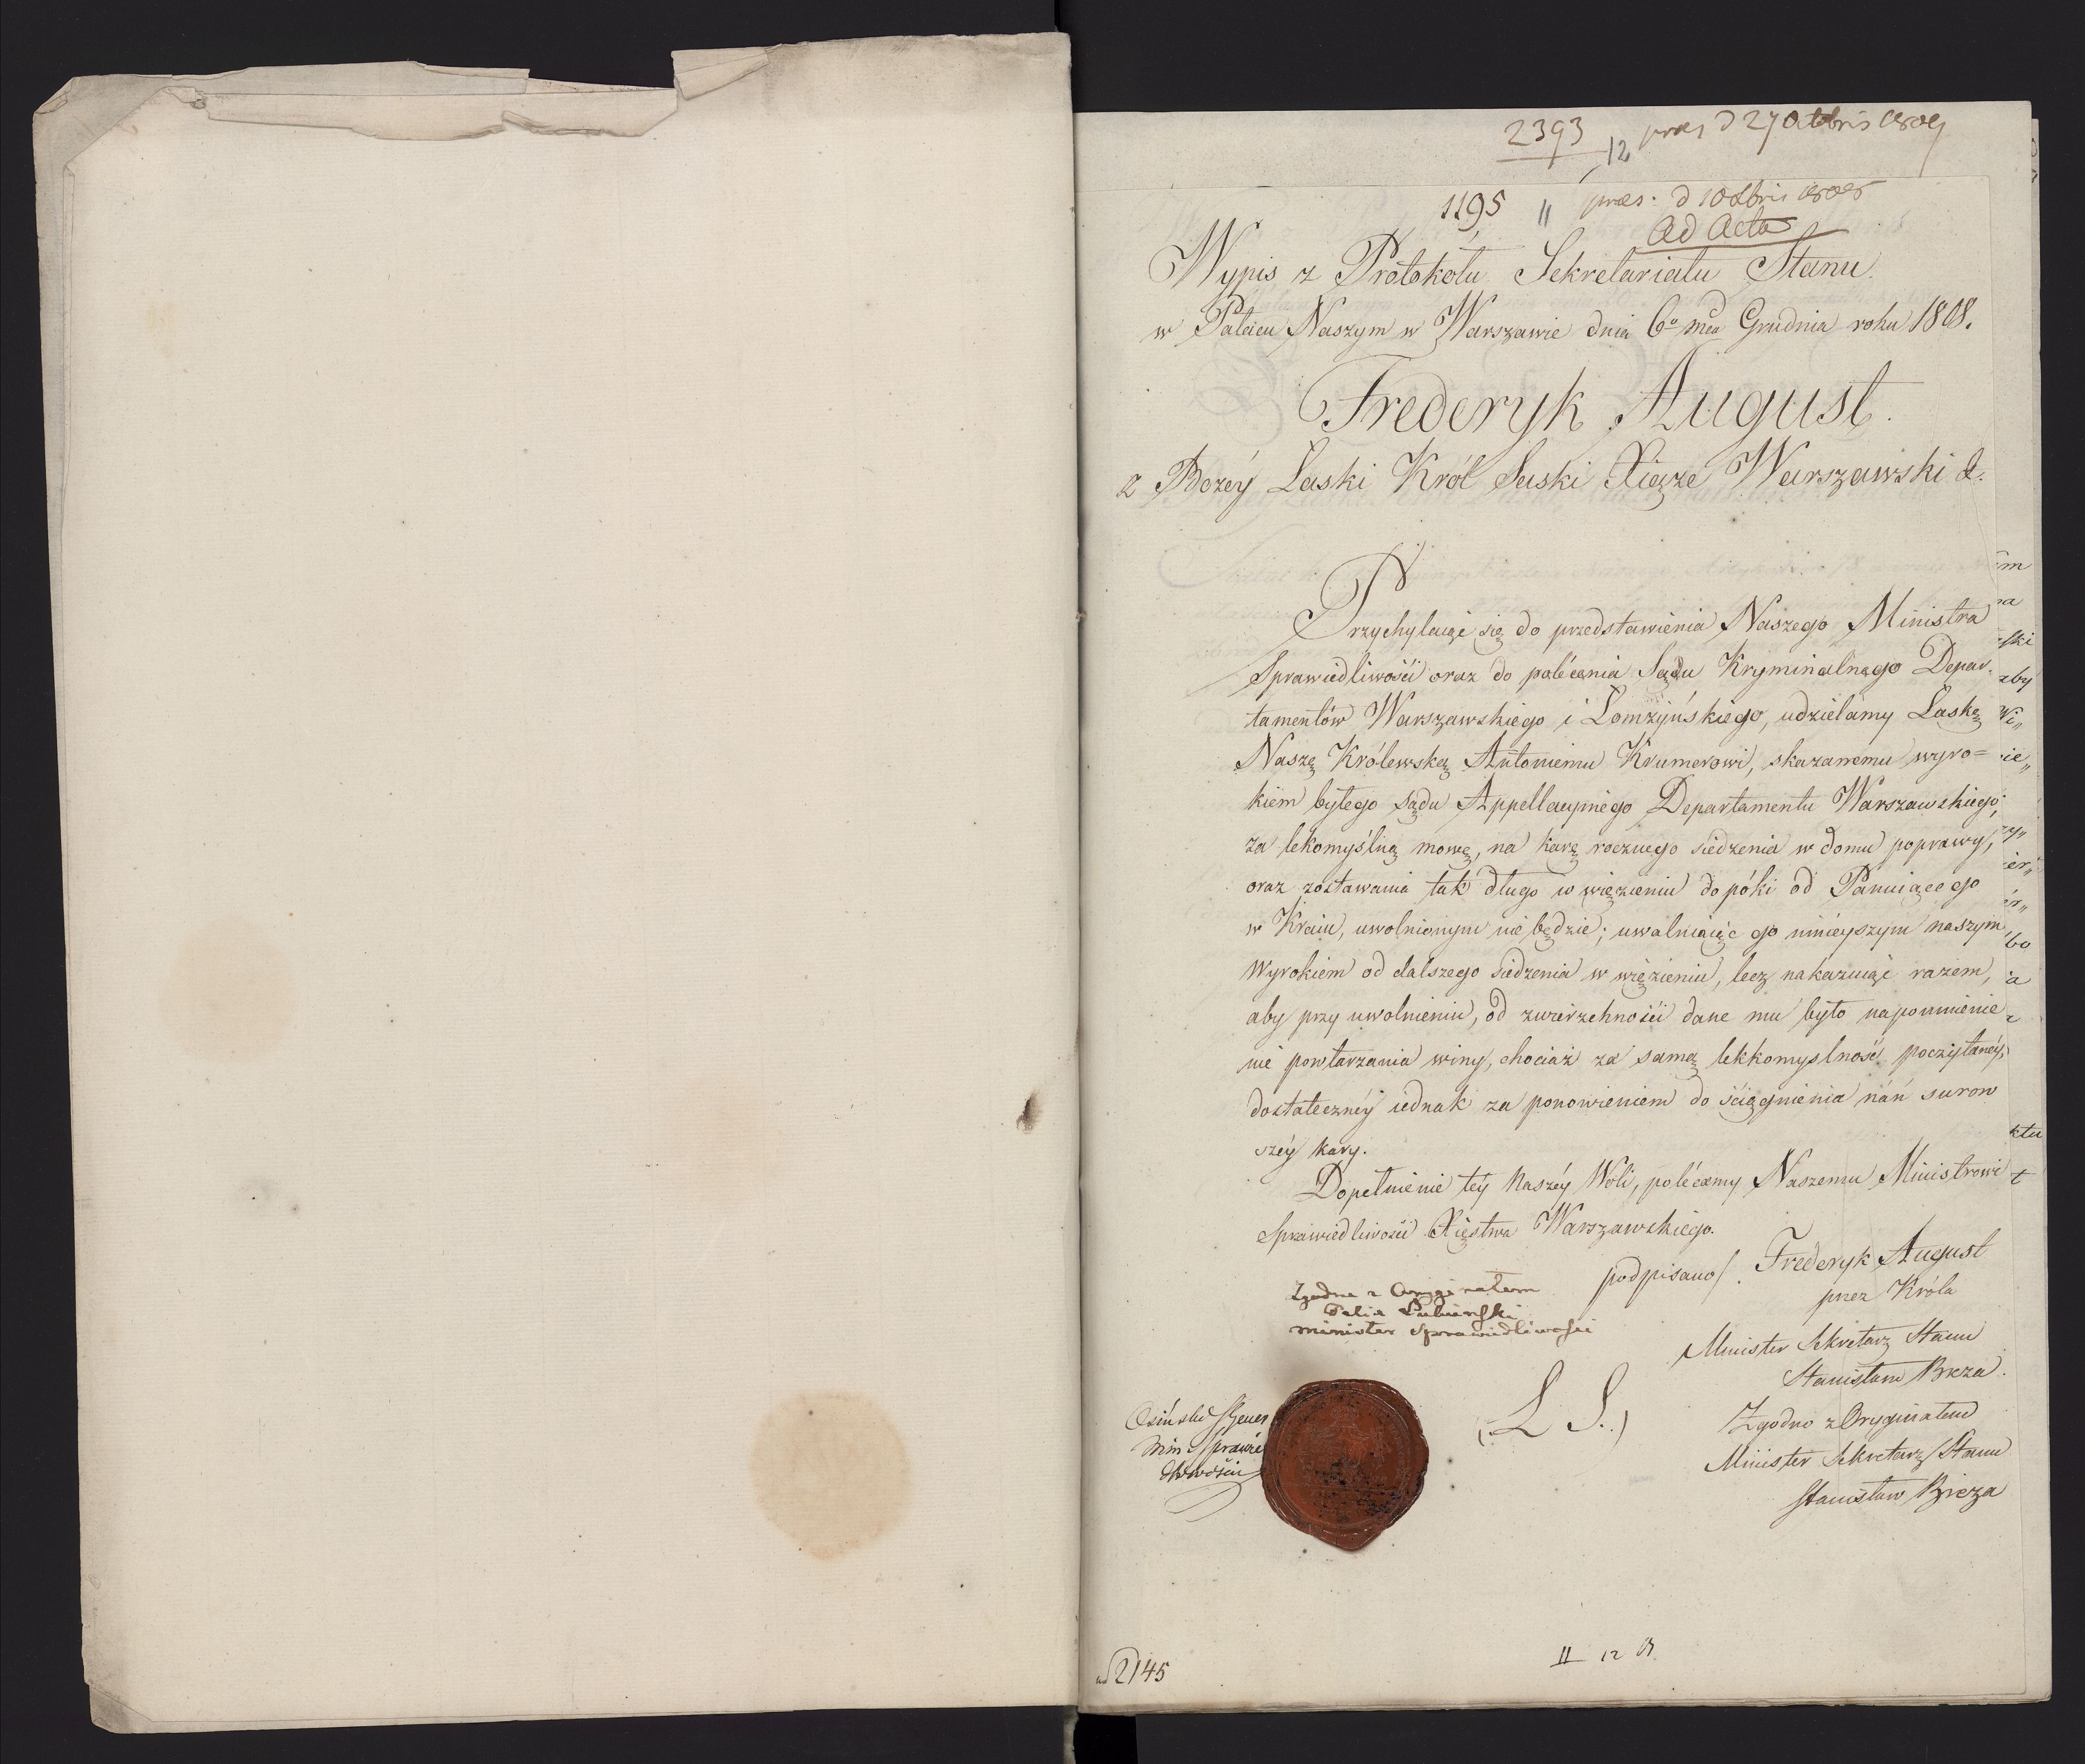 2393 12 praes d 27 Octbris 1809
1195 11 praes. d 10 Xbris 1808
Ad Acta
Wypis z Protokółu Sekretariatu Stanu
w Pałacu Naszym w Warszawie dnia 6º mca Grudnia roku 1808.
Frederyk August
z Bożéy Łaski Król Saski Xiąże Warszawski &.
Przychylaiąc się do przedstawienia Naszego Ministra
Sprawiedliwości oraz do polécenia Sądu Kryminalnego Depar-
tamentów Warszawskiego i Łomżyńskiego, udzielamy Łaskę
Naszę Królewską Antoniemu Krumerowi, skazanemu wyro=
kiem byłego Sądu Appellacyinégo Departamentu Warszawskiego,
za lekomyślną mowę, na karę rocznego siedzenia w domu poprawy,
oraz zostawania tak długo w więzieniu dopóki od Panuiącego
w Kraiu, uwolnionym nie będzie; uwalniaiąc go ninieyszym naszym
Wyrokiem od dalszego siedzenia w więzieniu, lecz nakazuiąc razem,
aby przy uwolnieniu, od zwierzchności dane mu było napomnienie
nie powtarzania winy, chociaż za samą lekkomyslność poczytanéy,
dostatecznéy iednak za ponowieniem do ściągnienia nań surow
széy kary.
Dopełnienie téy Naszéy Woli, polécamy Naszemu Ministrowi
Sprawiedliwości Xięstwa Warszawskiego.
podpisano/. Frederyk August
przez Króla
Zgodne z Oryginałem
Felix Łubieński
minister Sprawiedliwości
Minister Sekretarz Stanu
Stanisław Breza.
(L S.)
Zgodno z Oryginałem
Minister Sekretarz Stanu
Stanisław Breza
Osiński S Gener
Min: Sprawie
dliwości
ad 2145
11 12 8
im
na
ski
aby
Wi„
ie„
zy„
ier„
ér„
bo
ia
ktu
t